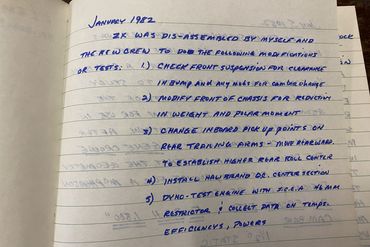 JANUARY 1982
ZX WAS DIS-ASSEMBLED BY MYSELF AND
THE NEW CREW TO DO THE FOLLOWING MODIFICATIONS
OR TESTS: 1) CHECK FRONT SUSPENSION FOR CLEARANCE
IN BUMP AND ANY MODS FOR CAMBER CHANGE
2) MODIFY FRONT OF CHASSIS FOR REDUCTION
IN WEIGHT AND POLAR MOMENT
3) CHANGE INBOARD PICK UP POINTS ON
REAR TRAILING ARMS - MOVE REARWARD
TO ESTABLISH HIGHER REAR ROLL CENTER
4) INSTALL HALIBRAND OR. CENTER SECTION
5) DYNO-TEST ENGINE WITH S.C.C.A 46MM
RESTRICTOR & COLLECT DATA ON TEMPS.
EFFICIENCY, POWERS